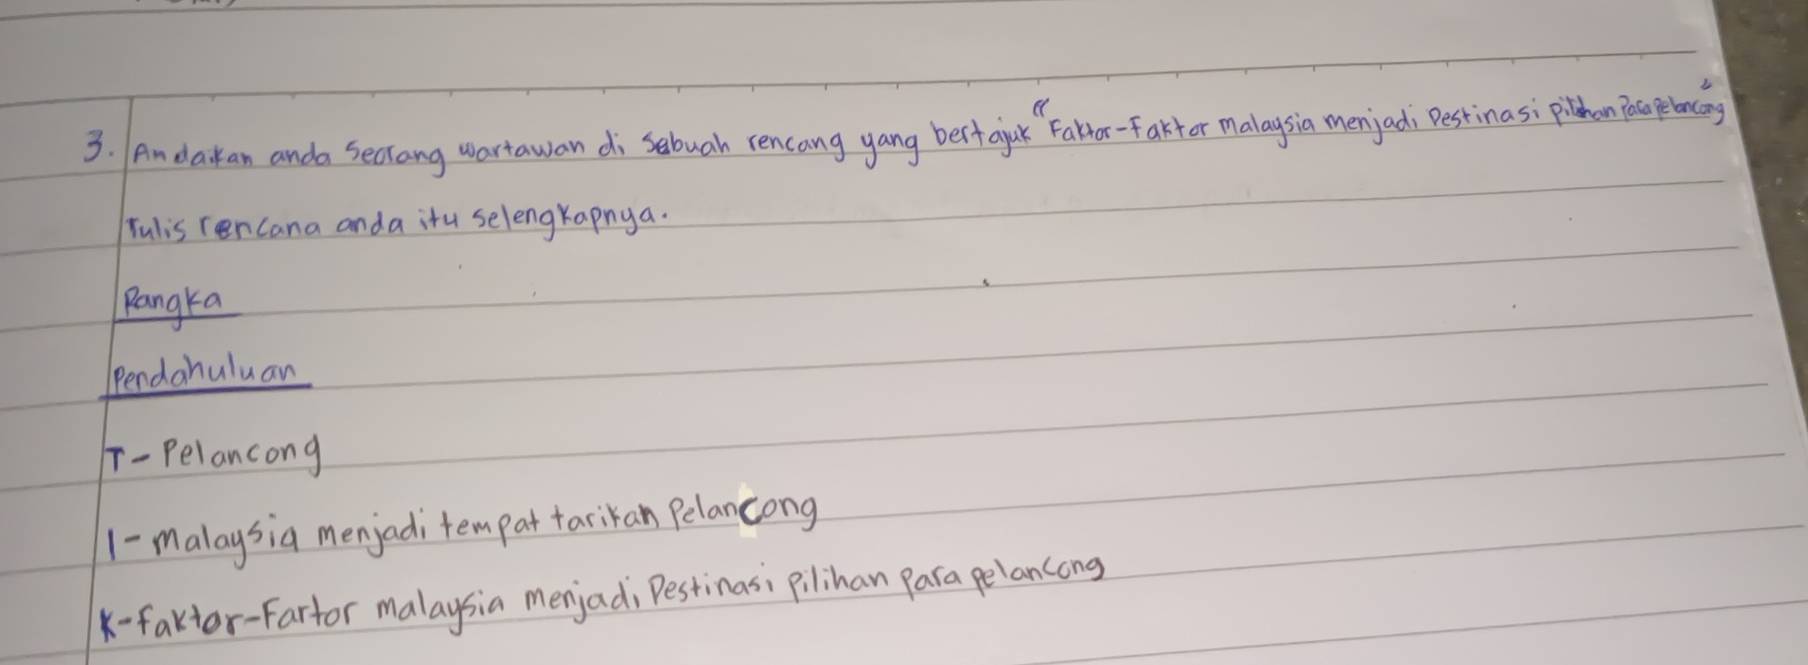 3. Andaikan anda seorang wartawan di sebuah rencang yang bertajuk "Faktor-Faktor malaysia menjadi Destinasi pilihan Para pelancong"
Tulis rencana anda itu selengkapnya.
Rangka
Pendahuluan
T- Pelancong
I- malaysia menjadi tempat tarikan Pelancong
K- faktor-Fartor malaysia menjadi Destinasi pilihan para pelancong